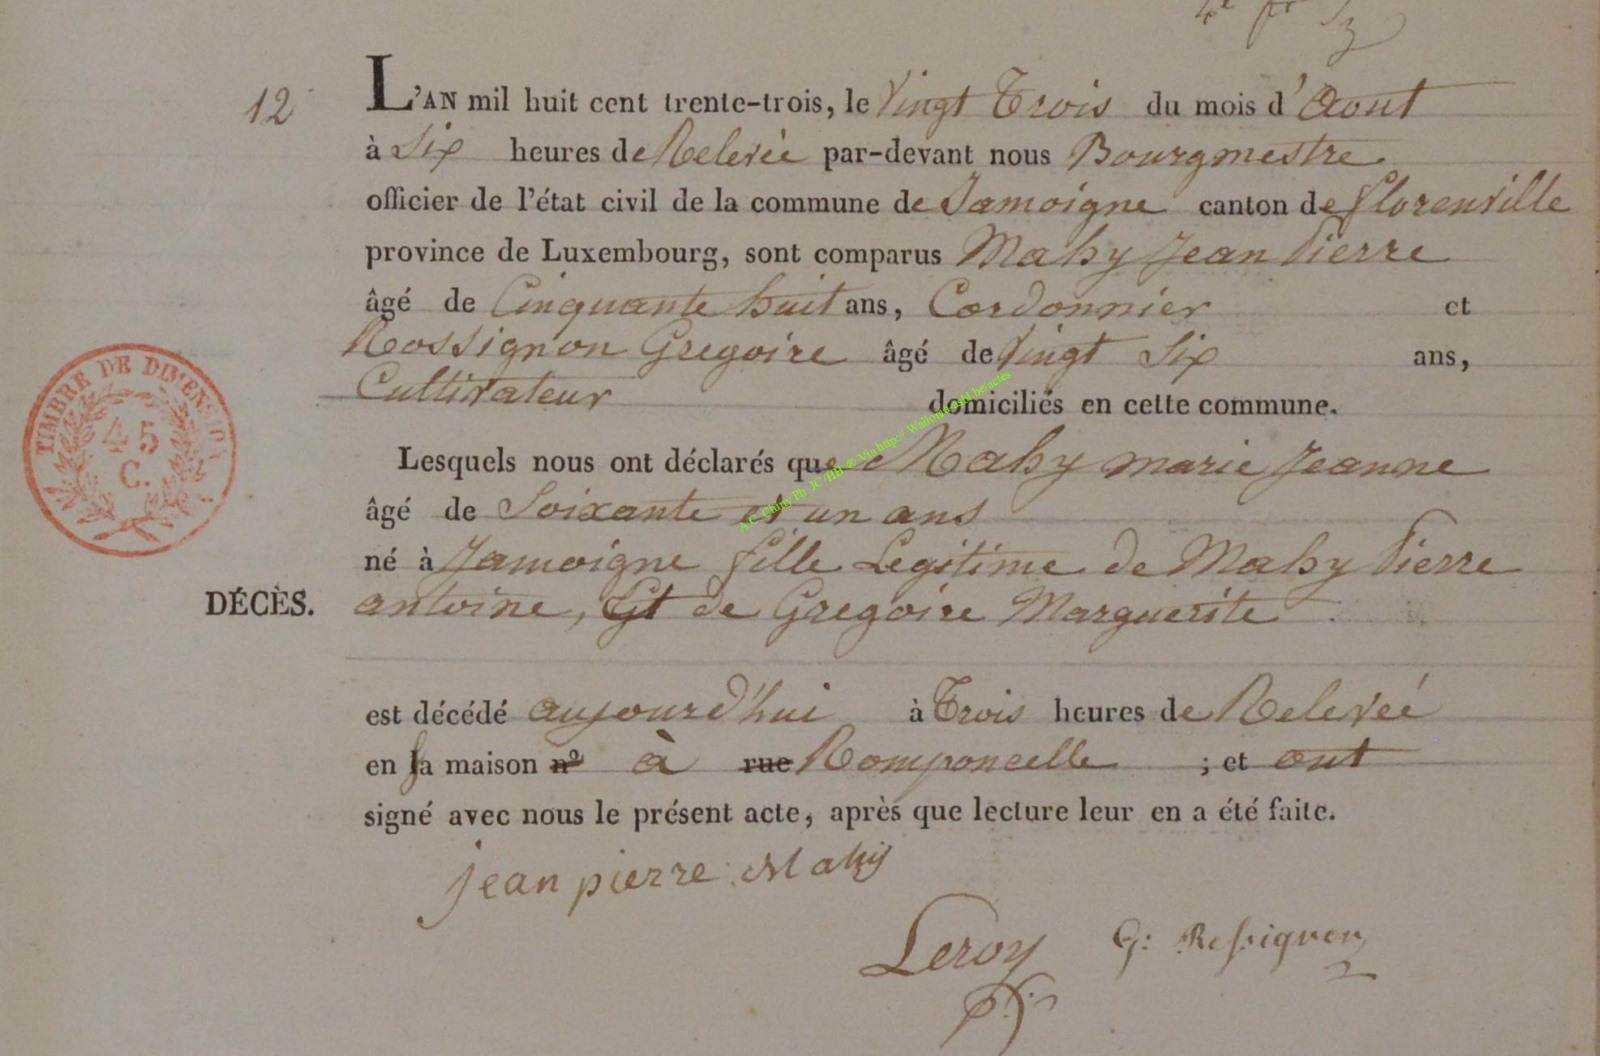 12
L'AN mil huit cent trente-trois, le Vingt Trois du mois d'Aout
à Six heures de Relevée par-devant nous Bourgmestre
officier de l'état civil de la commune de Jamoigne canton de florenville
province de Luxembourg, sont comparus Mahy Jean Pierre
âgé de Cinquante huit ans, Cordonnier et
Rossignon Gregoire âgé de Vingt Six ans,
Cultivateur domiciliés en cette commune.
Lesquels nous ont déclarés que Mahy marie Jeanne
âgé de Soixante et un ans
né à Jamoigne fille Legitime de Mahy Pierre
DÉCÈS. antoine, Et de Gregoire Marguerite
est décédé aujourd'hui à Trois heures de Relevée
en sa maison nº à rue Romponcelle ; et ont
signé avec nous le présent acte, après que lecture leur en a été faite.
jean pierre Mahy
Leroy G: Rossignon
TIMBRE DE DIMENSION
45
C.